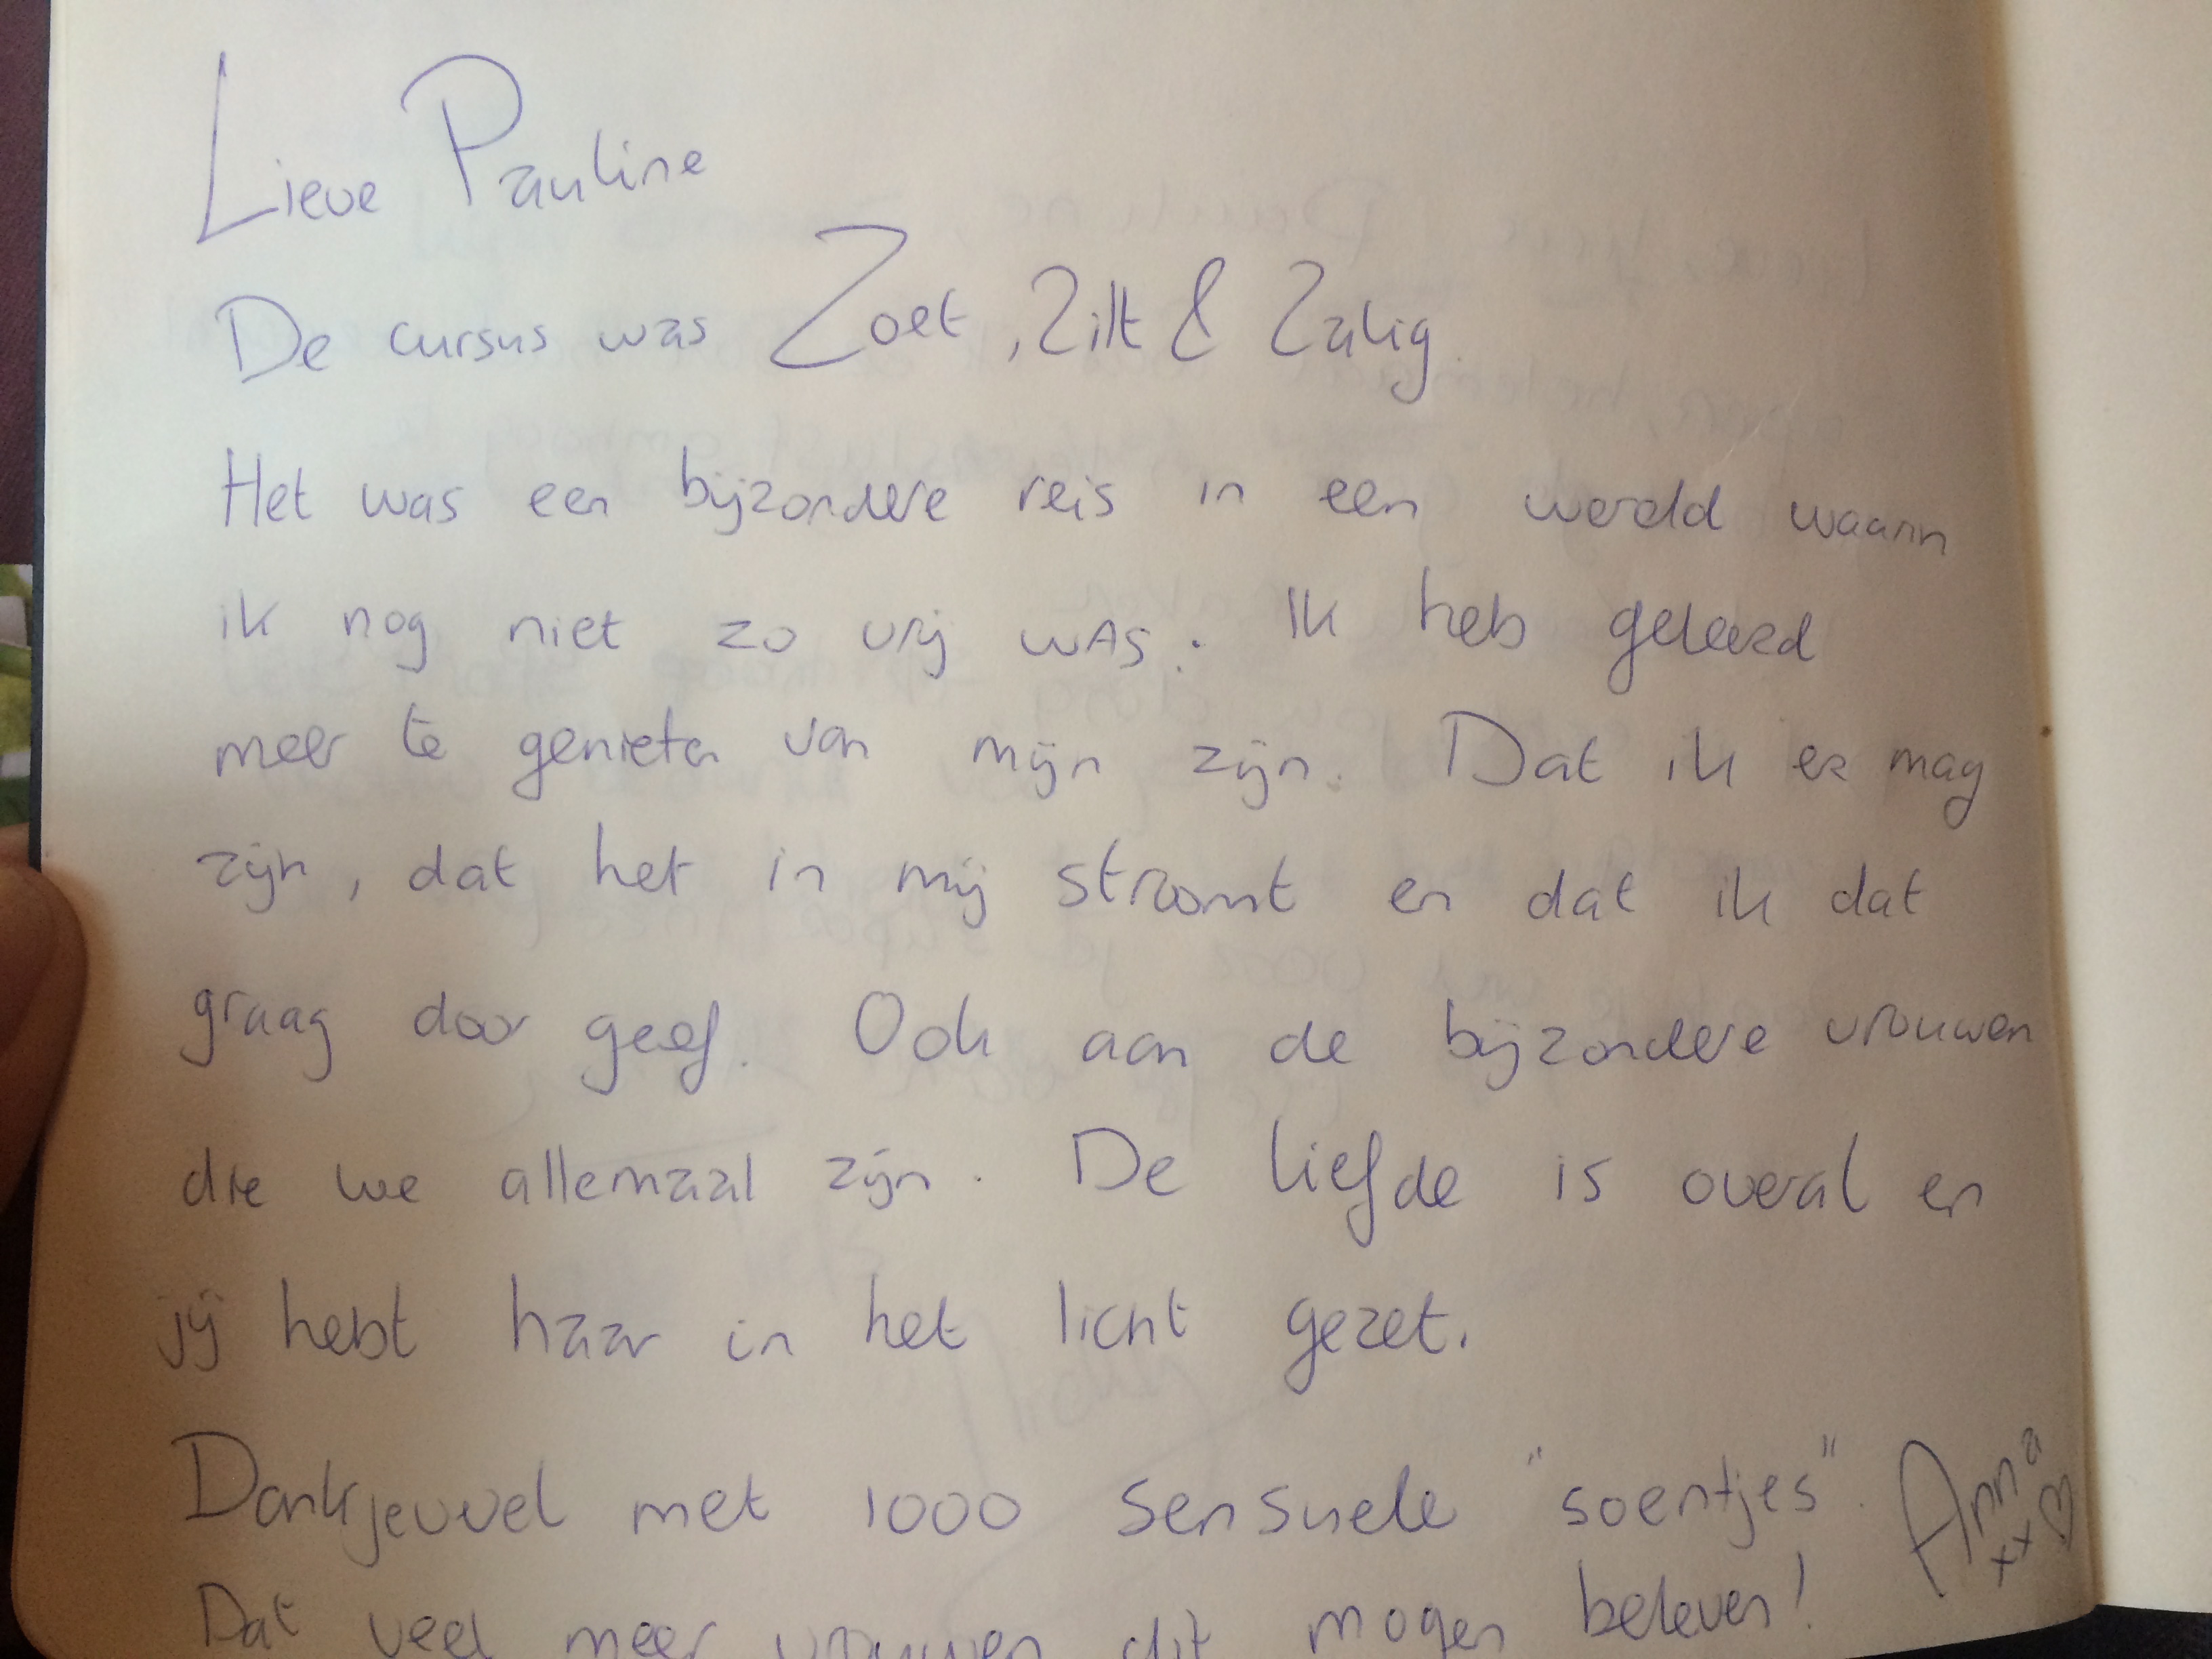 Lieve Pauline
De cursus was Zoet, Zilt & Zalig.
Het was een bijzondere reis in een wereld waarin
ik nog niet zo vrij was. Ik heb geleerd
meer te genieten van mijn zijn. Dat ik er mag
zijn, dat het in mij stroomt en dat ik dat
graag door geef. Ook aan de bijzondere vrouwen
die we allemaal zijn. De liefde is overal en
jij hebt haar in het licht gezet.
Dankjewel met 1000 sensuele "soentjes". Anna
xx♡
Dat veel meer vrouwen dit mogen beleven!